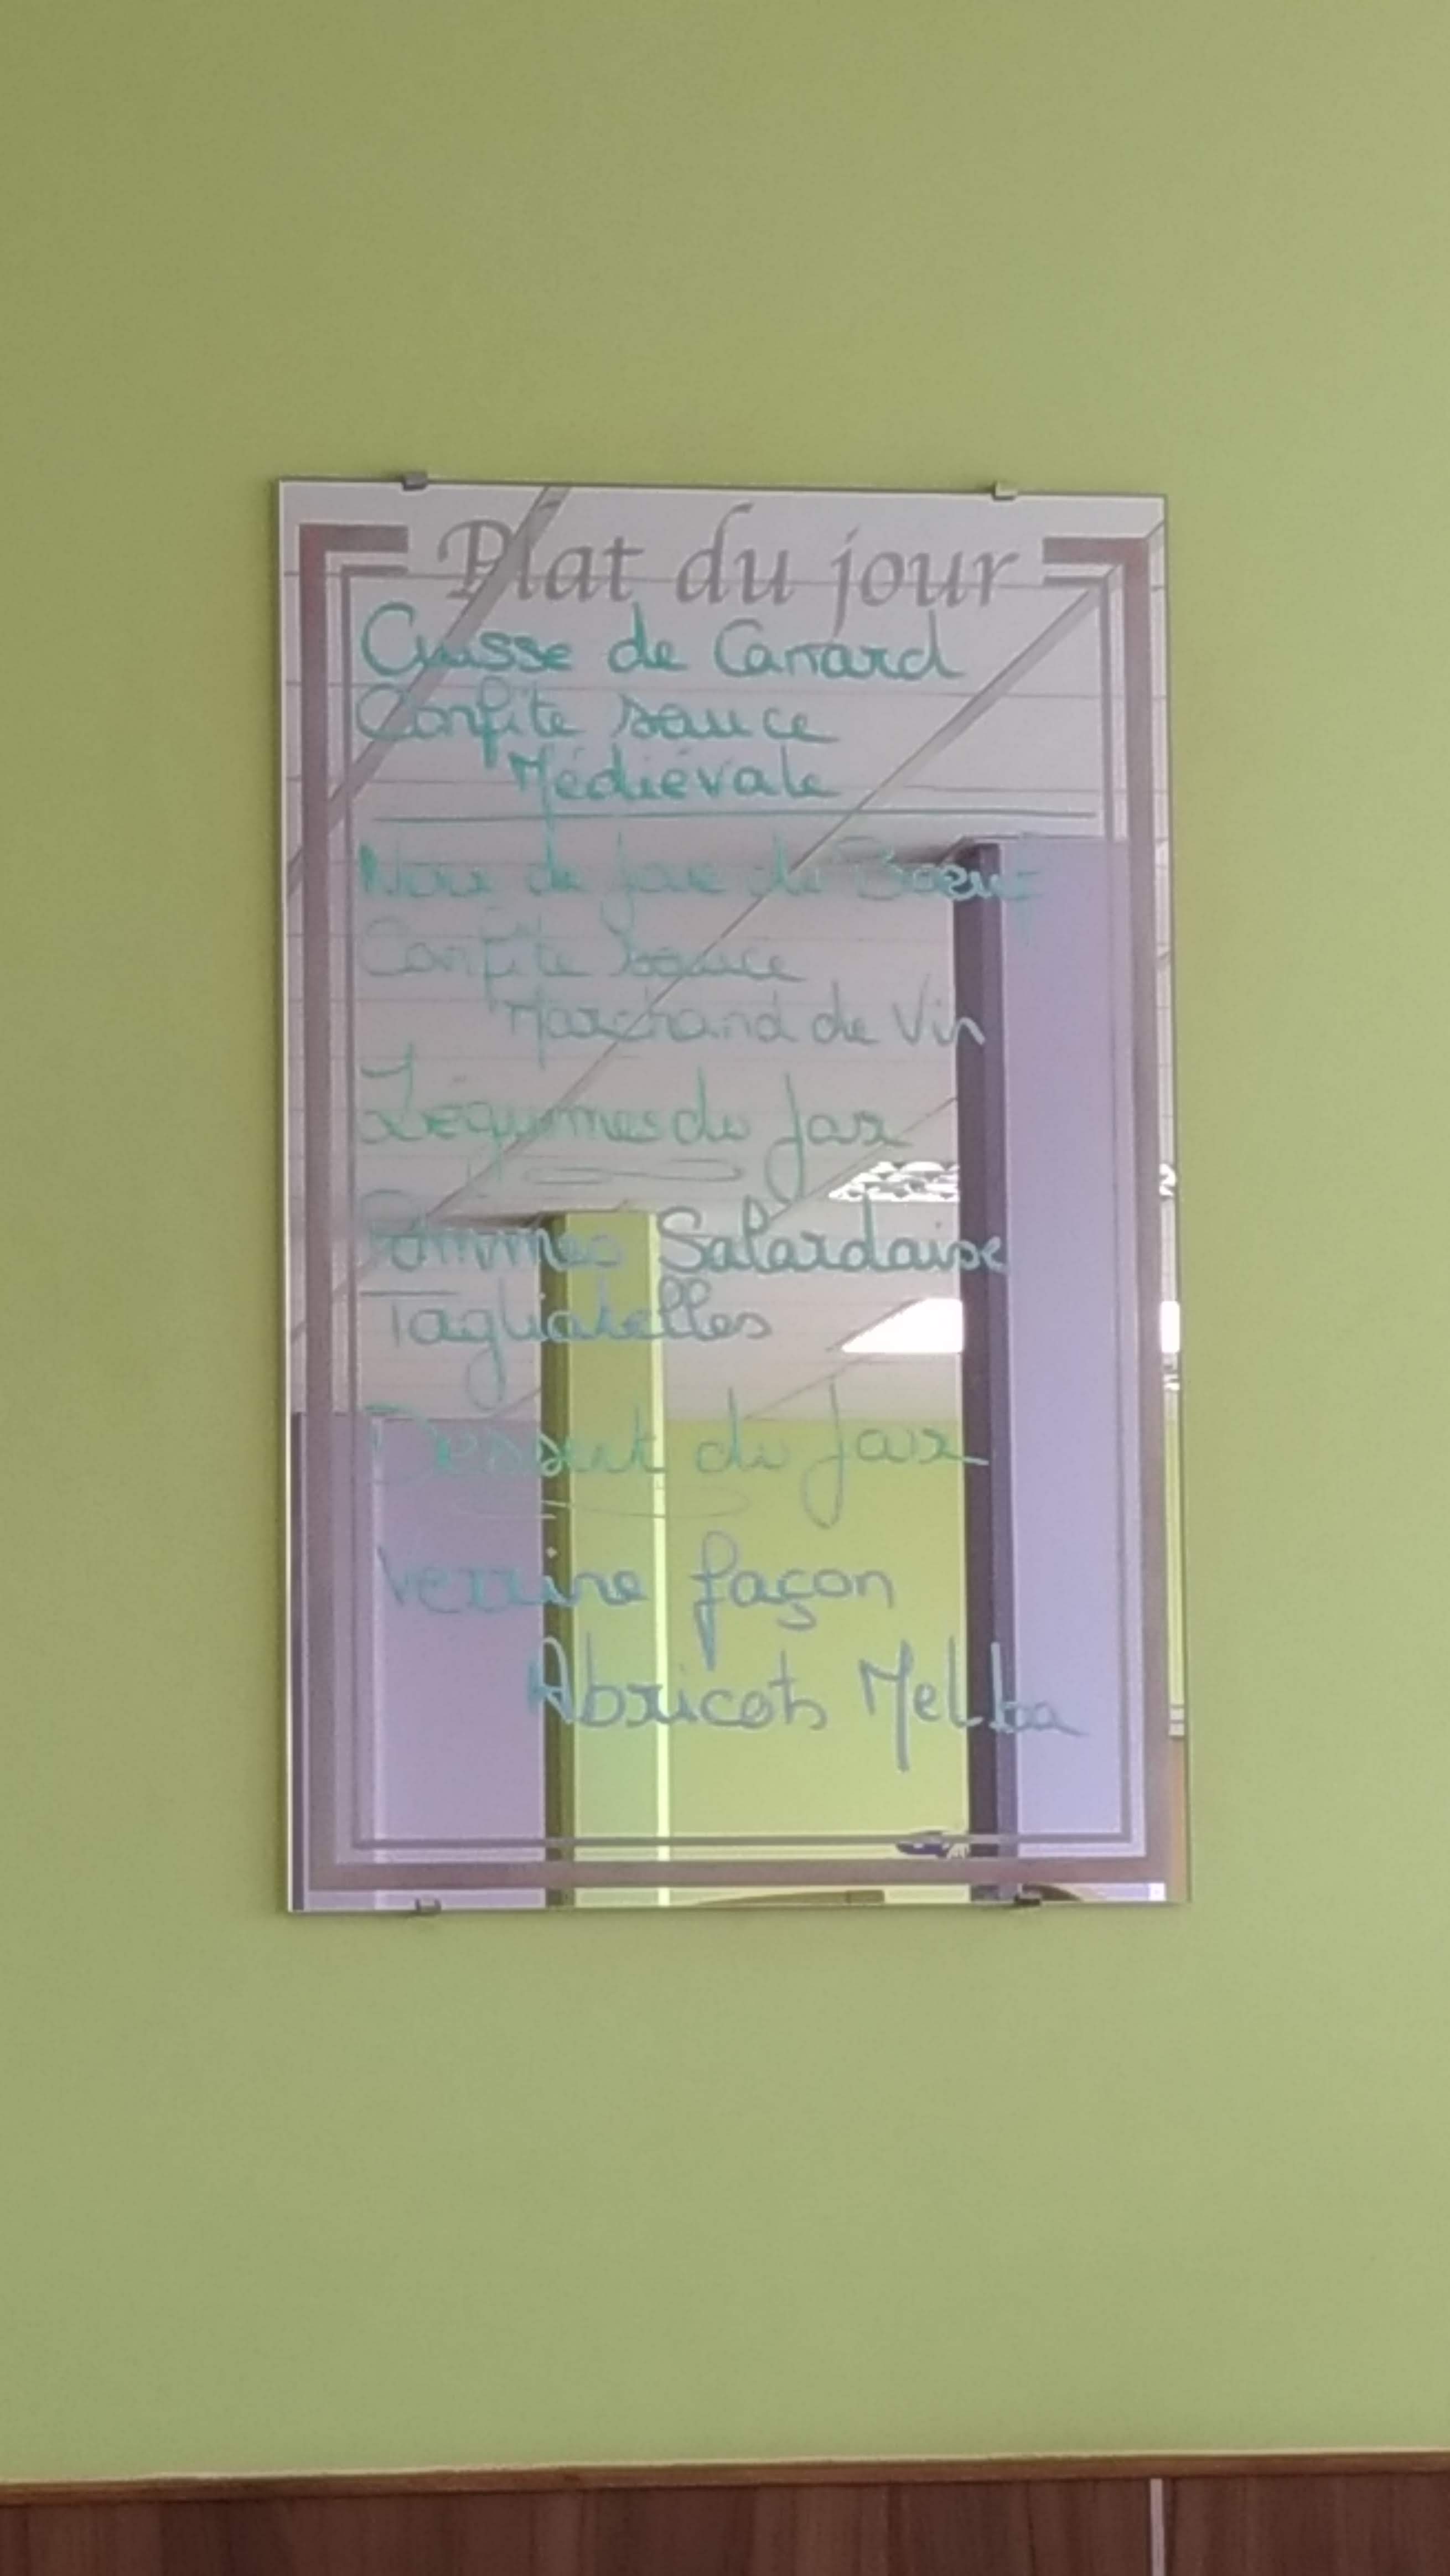 Plat du jour
Cuisse de Canard
Confite sauce
Médiévale
Noix de Joue de Boeuf
Confite sauce
Marchand de Vin
Légumes du Jour
Pommes Salardaise
Tagliatelles
Dessert du Jour
Verrine façon
Abricots Melba